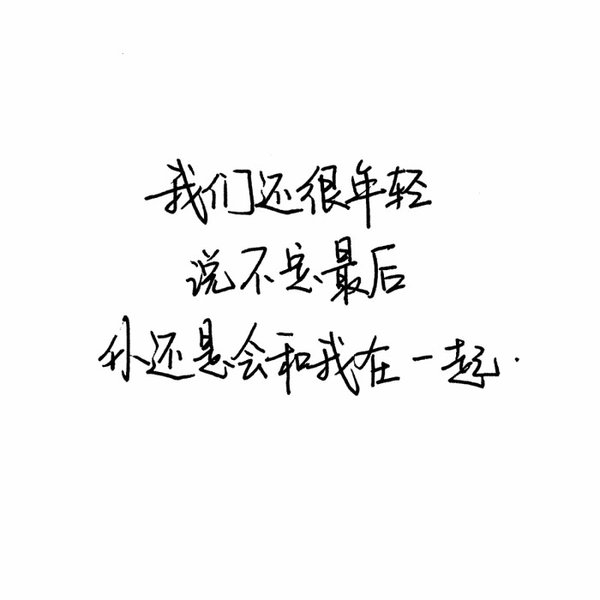 我们还很年轻
说不定最后
你还是会和我在一起.